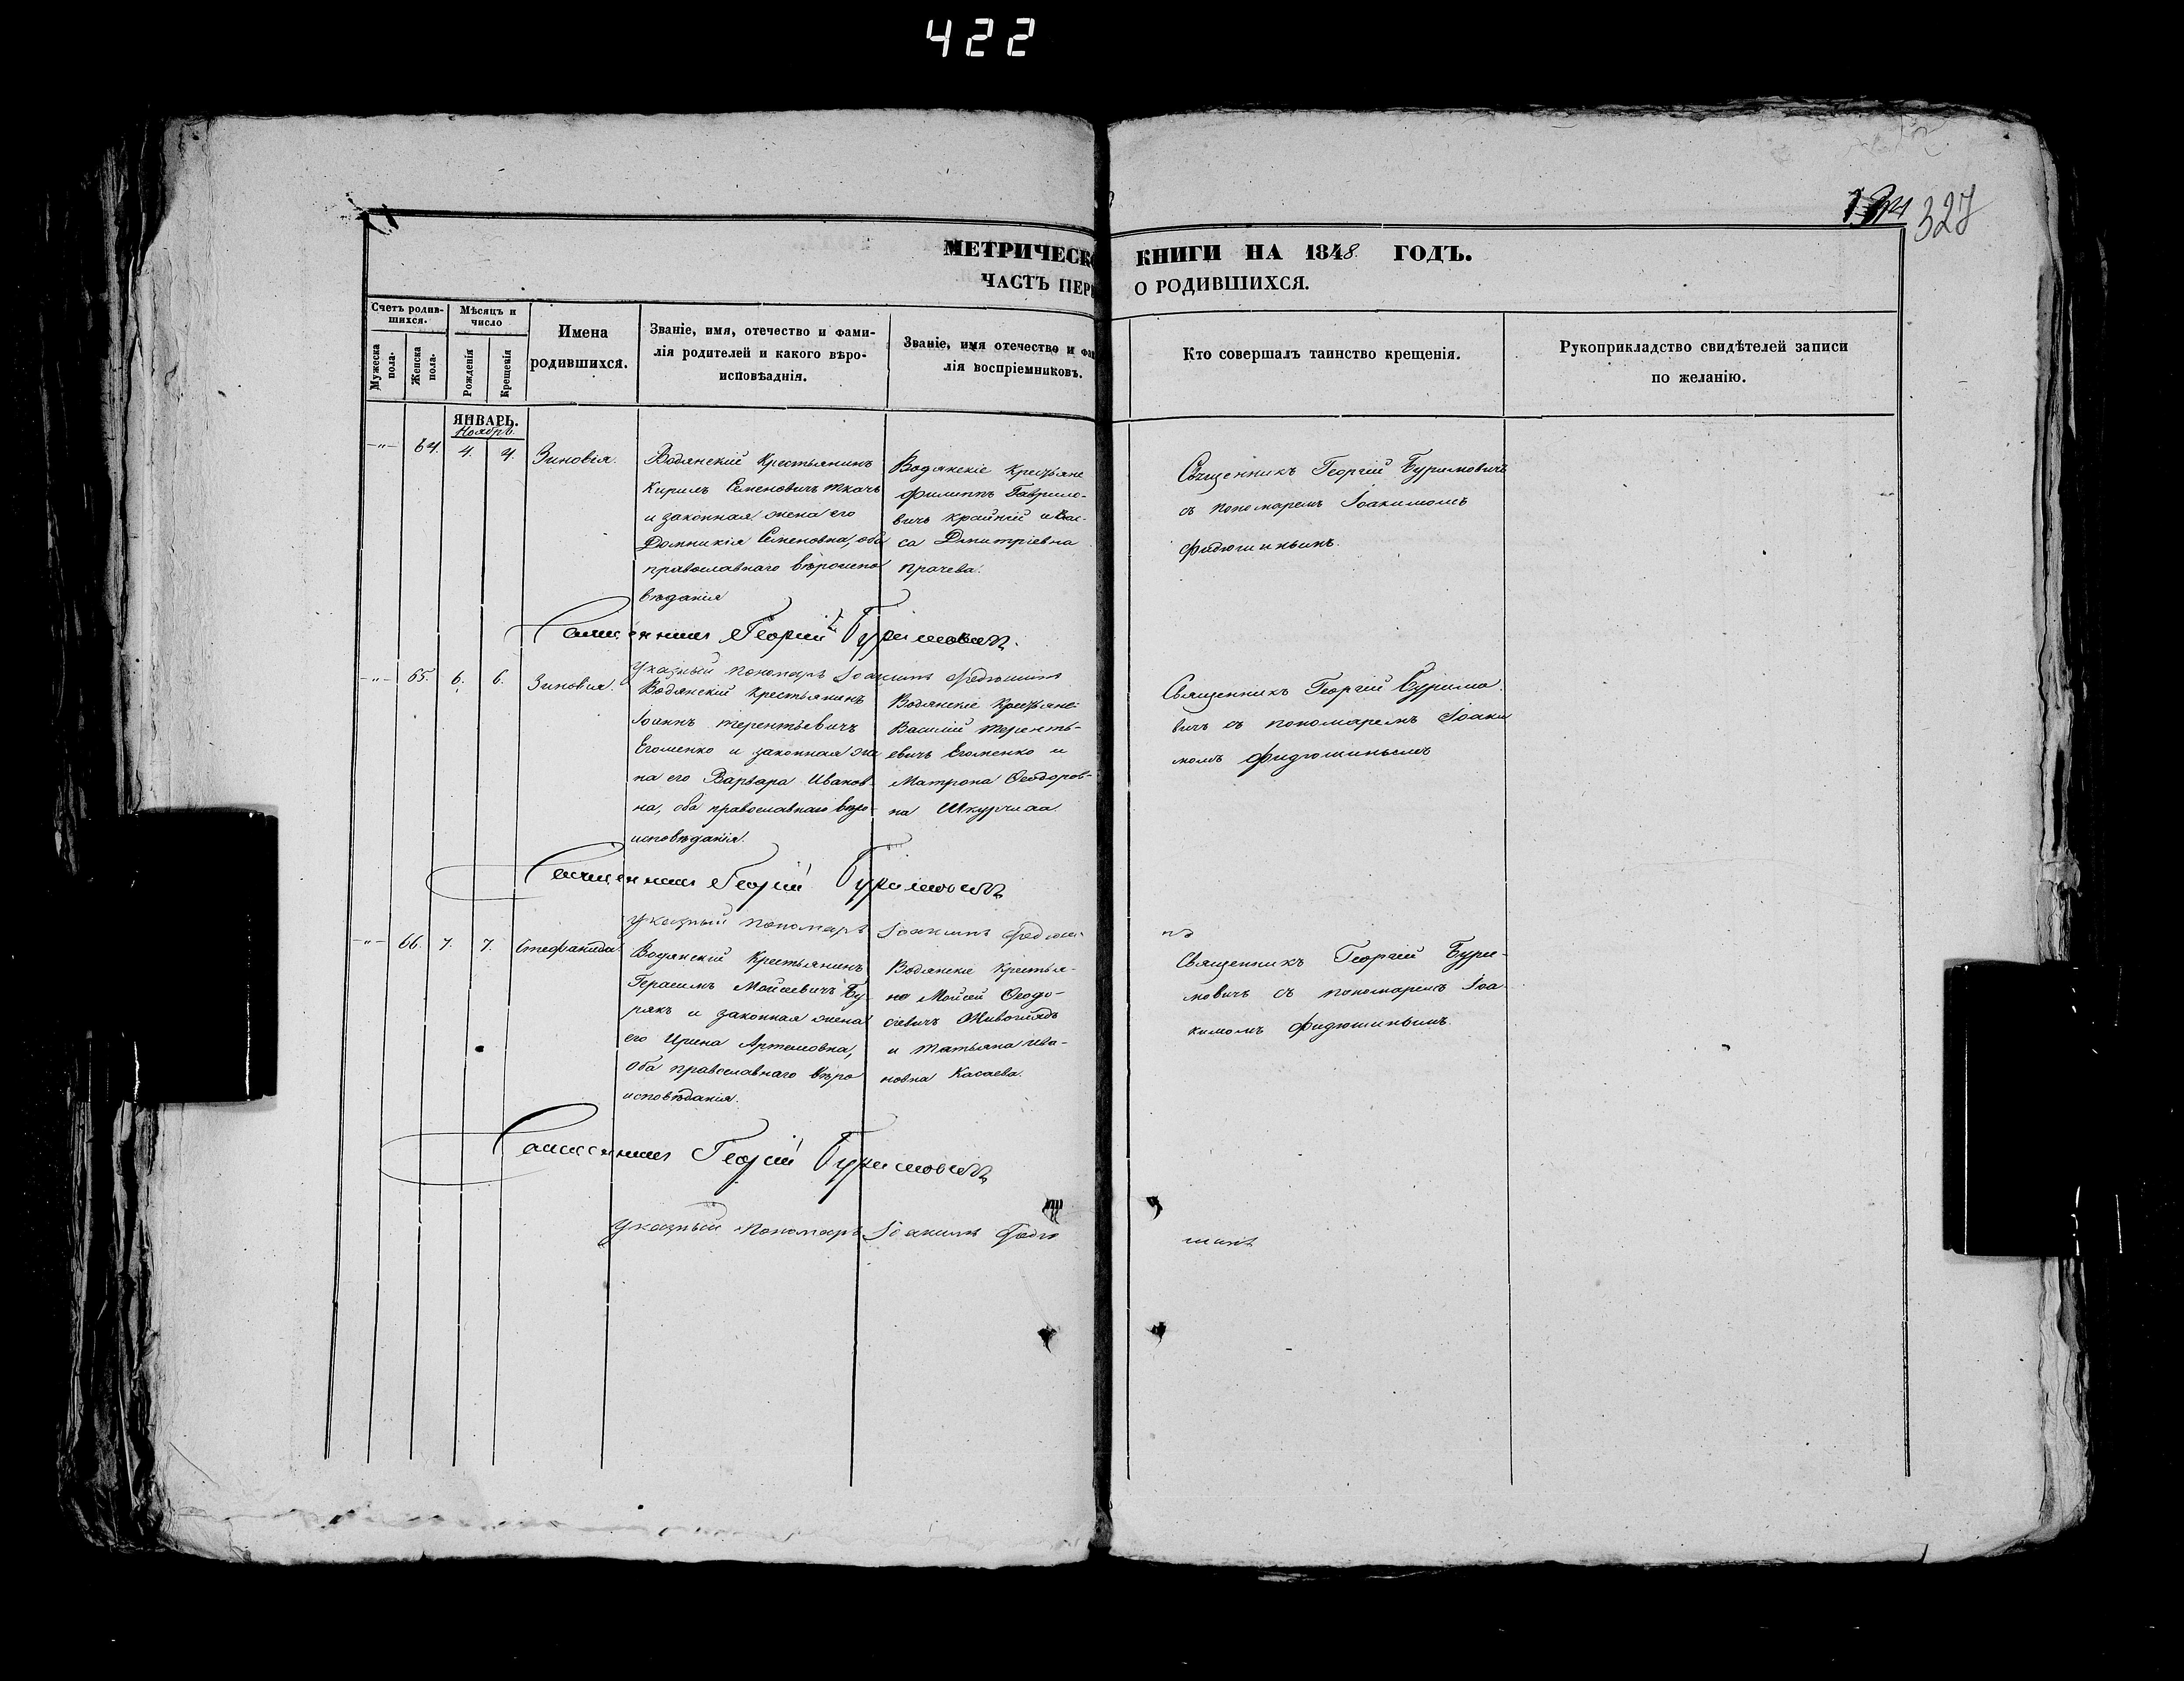 422
327
МЕТРИЧЕСКО КНИГИ НА 1848 ГОДЪ.
ЧАСТЬ ПЕР О РОДИВШИХСЯ.
Счетъ родив-
шихся.
Мужеска пола.
Женска пола.
Мѣсяцъ и
число
Рожденія
Крещенія
Имена
родившихся.
Званіе, имя, отечество и фами-
лія родителей и какого вѣро-
исповѣаднія.
Званіе, имя отечество и фа
лія воспріемниковъ.
Кто совершалъ таинство крещенія.
Рукоприкладство свидѣтелей записи
по желанію.
ЯНВАРЬ.
Ноябрь.
64. 4. 4. Зиновія.
Водянскій Крестьянинъ
Кирилъ Семеновичъ Ткачь
и законная жена его
Домникія Семеновна, оба
православнаго вѣроиспо
вѣданія
Водянскіе Крестьяне
Филиппъ Гаврило-
вичь Крайній и Вас-
са Дмитріевна
Священникъ Георгій Буримовичъ
съ пономаремъ Іоакимомъ
Фидюшинымъ.
Священникъ Георгій Буримовичъ.
Указный пономарь Іоакимъ Федюшинъ
65. 6. 6. Зиновія.
Водянскій крестьянинъ
Іоаннъ Терентьевичъ
Егоменко и законная же
на его Варвара Иванов-
на, оба православнаго вѣро-
исповѣданія.
Водянскіе Крестьяне
Василій Теренть-
евичъ Егоменко и
Матрона Ѳеодоров-
на
Священникъ Георгій Буримо
вичъ съ пономаремъ Іоаки
момъ Фидюшинымъ
Священникъ Георгій Буримовичъ
Указный пономарь Іоакимъ Федюши
нъ
66. 7. 7. Стефанида
Водянскій Крестьянинъ
Герасимъ Мойсеевичъ Бу-
рякъ и законная жена
его Ирина Артемовна,
оба православнаго вѣро
исповѣданія.
Водянскіе Крестья-
не Мойсей Ѳеодо-
сіевичъ Живоглядъ
и Татьяна Ива-
новна Касаева.
Священникъ Георгій Бури-
мовичъ съ пономаремъ Іоа
кимомъ Фидюшинымъ.
Священникъ Георгій Буримовичъ
Указный пономарь Іоакимъ Федю
шинъ